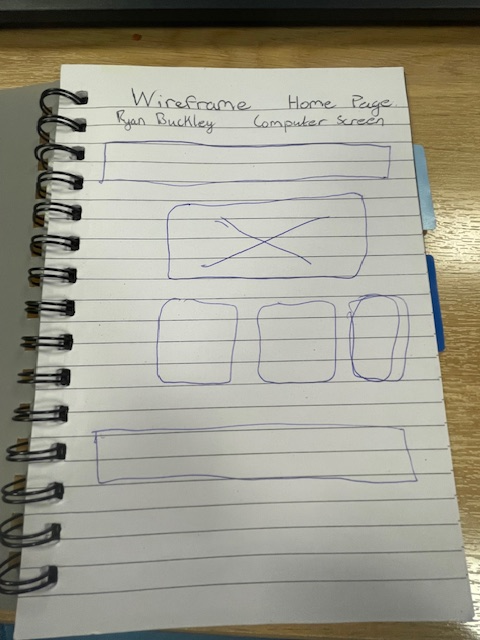 Wireframe Home Page
Ryan Buckley Computer Screen